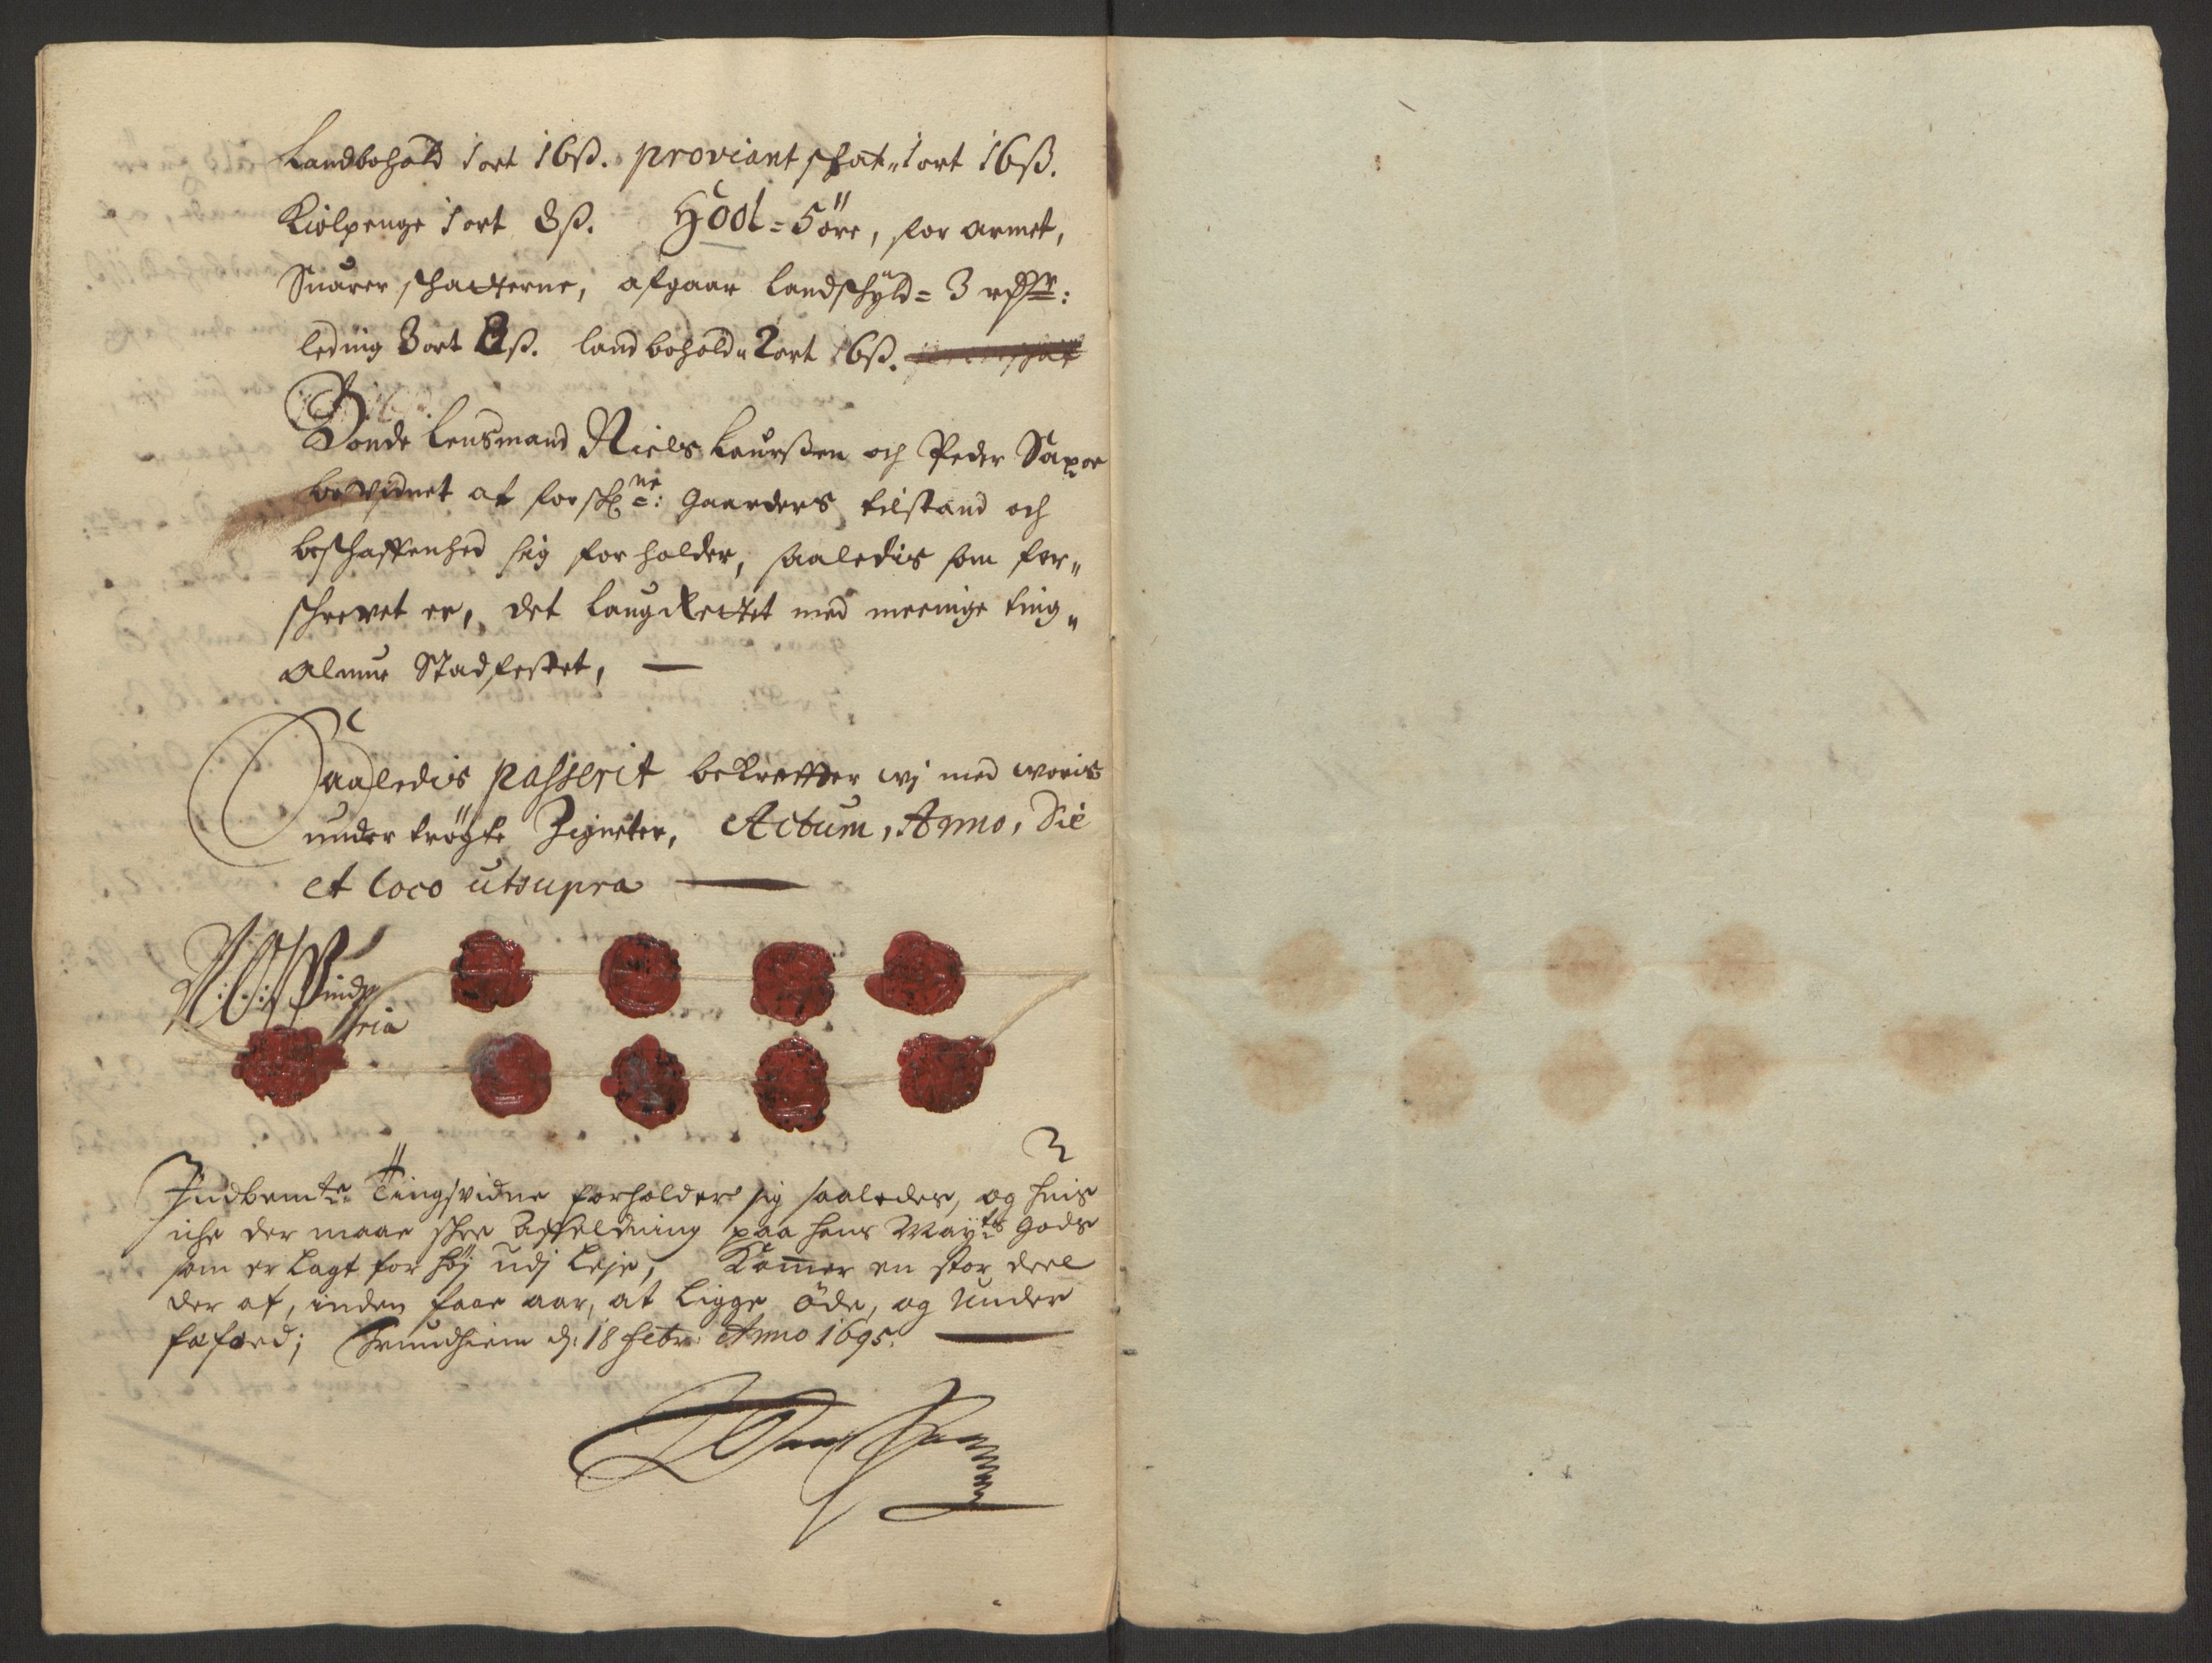 Landbohold 1 ort 16 ß. proviant skat „ 1 ort 16 ß.
Kiølpenge 1 ort 8 ß. Hool = 5 öre, for armet,
Suarer schatterne, afgaar landschÿld = 3 rdr:
leding 3 ort 8 ß. landbohold „ 2 ort 16 ß.
Bonde Lensmand Niels Laurssen och Peder Saxoe
beVidnet at forschne: Gaarders tilstand och
beschaffenhed sig forholder, saaledis som for„
schrevet er, det LaugRettet med meenige ting„
Almue Stadfestet,
Saaledis passerit bekreffter wj med woris
undertrögte Zigneter, Actum, Anno, Die
et loco utsupra
Indbemte Tingsvidne forholder sig saaledes, og huis
iche der maae schee affeldning paa hans Mayts Gods
som er lagt for höj udj leje, Kommer en stor deel
der af, inden faae aar, at ligge öde, og under
fæfoed; Trundhiem d: 18 febr: Anno 1695.